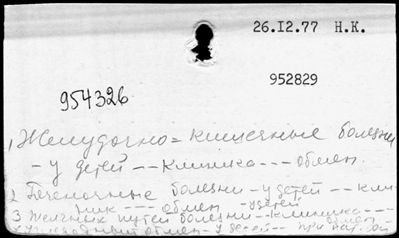 26.I2.77 Н.К.
952829
954326
1 Желудочно=кишечные болезни
- у детей -- клиника --- обмен.
2 Печеночные болезни - у детей -- кли-
ника --- обмен - у детей
3 Желчных путей болезни -- клиника ---
обмен
обмен - у детей --